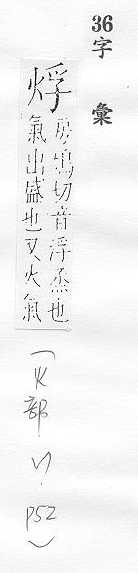 36字彙
烰
房鳩切音浮烝也
氣出盛也又火氣
(火部 ㄐ P52)